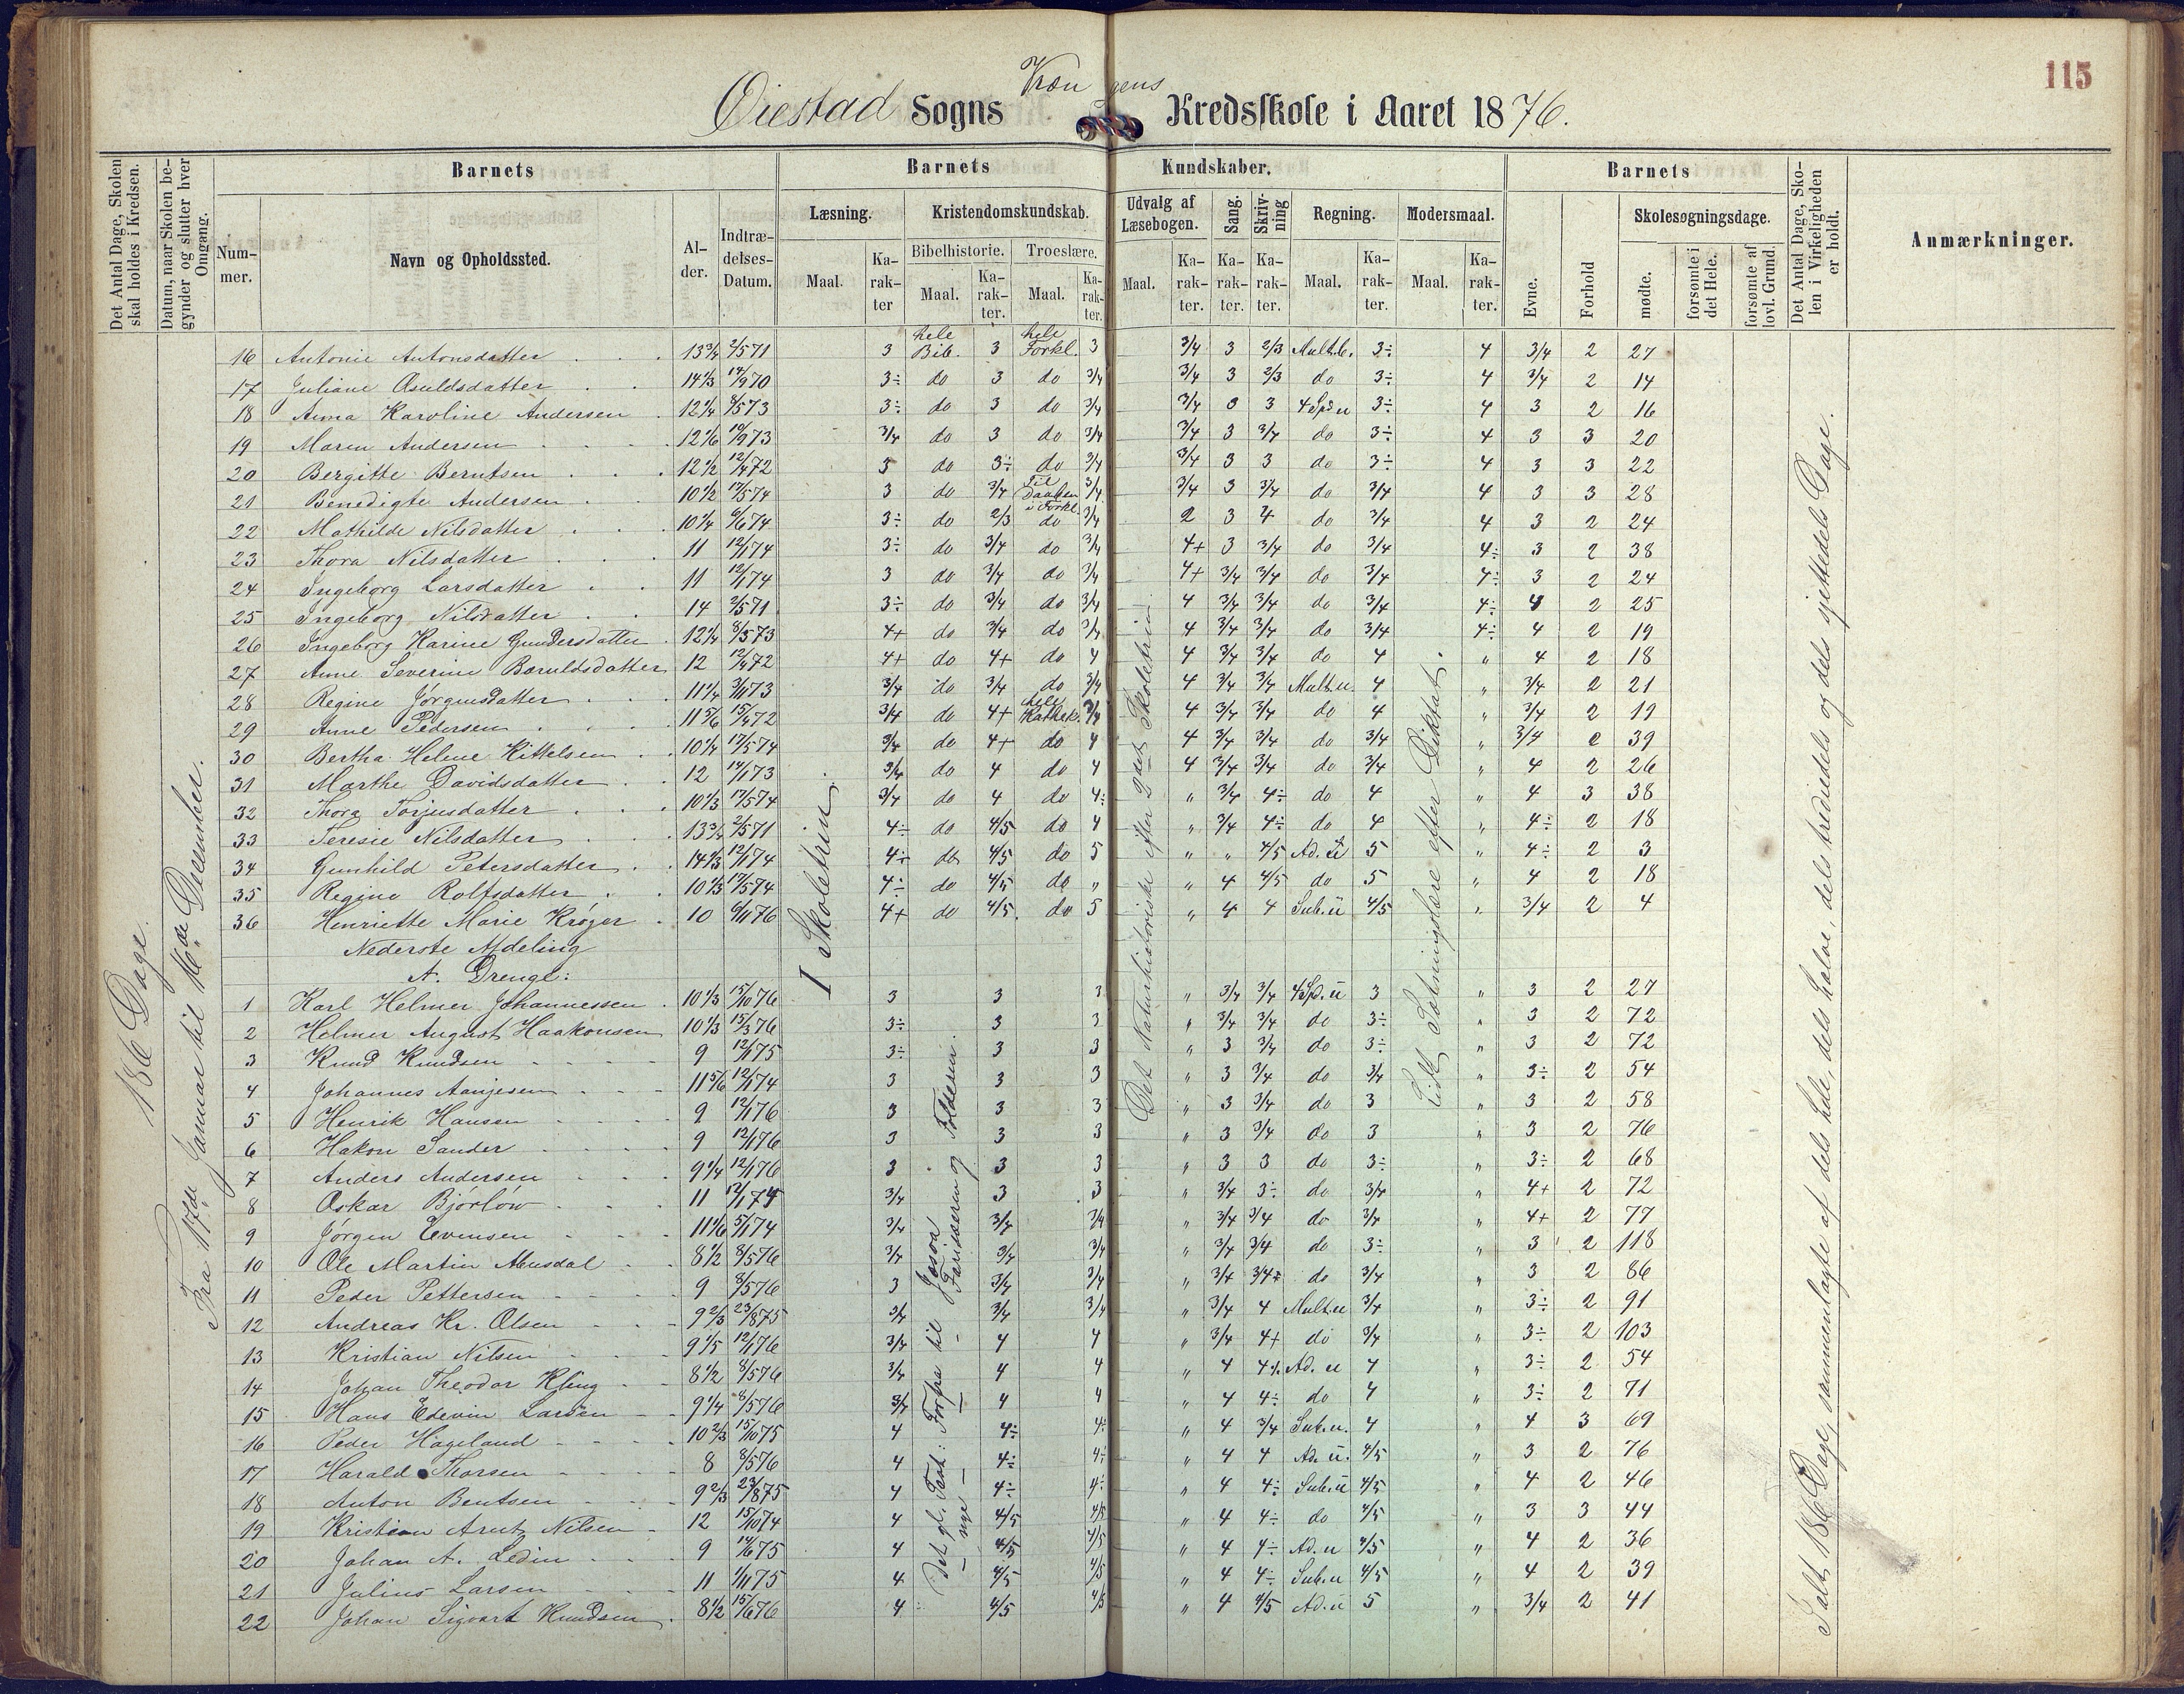 115
Øiestad Sogns Kredsskole i Aaret 1876.
Det Antal Dage, Skolen skal holdes i Kredsen.
Datum, naar Skolen begynder og slutter hver Omgang.
Barnets
Barnets Kundskaber.
Barnets
Det Antal Dage, Skolen i Virkeligheden er holdt.
Anmærkninger.
Nummer.
Navn og Opholdssted.
Alder.
Indtrædelses-Datum.
Læsning.
Kristendomskundskab.
Udvalg af Læsebogen.
Sang.
Skrivning
Regning.
Modersmaal.
Evne.
Forhold
Skolesøgningsdage.
Bibelhistorie.
Troeslære.
Maal.
Karakter
Maal.
Karakter.
Maal.
Karakter.
Maal.
Karakter.
Karakter.
Karakter.
Maal.
Karakter.
Maal.
Karakter.
mødte.
forsømte i det Hele.
forsømte af lovl. Grund.
186 Dage.
Fra 17de Januar til 16de December.
I Skoletrin
Det gl. Test: Forfra til Josva
— nye — Fariseeren og Tolderen.
Det Naturhistoriske efter 2det Skoletrin
Lidt Sætningslære efter Diktat.
Ialt 186 Dage, sammenlagte af dels hele, dels halve, dels trediedels og dels sjettedels Dage.
16 Antonie Antonsdatter 13 3/4 2/5 71 3 hele Bib. 3 hele Forkl. 3 3/4 3 2/3 Mult. b. 3÷ 4 3/4 2 27
17 Juliane Osuldsdatter 14 1/3 14/9 70 3÷ do 3 do 3/4 3/4 3 2/3 do 3÷ 4 3/4 2 14
18 Anna Karoline Andersen 12 1/4 8/5 73 3÷ do 3 do 3/4 3/4 3 3 4 Sp. u 3÷ 4 3 2 16
19 Maren Andersen 12 1/6 10/9 73 3/4 do 3 do 3/4 3/4 3 3/4 do 3÷ 4 3 3 20
20 Bergitte Berntsen 12 1/2 12/4 72 3 do 3÷ do 3/4 3/4 3 3 do 3÷ 4 3 3 22
21 Benedigte Andersen 10 1/2 17/5 74 3 do 3/4 Til Daaben i Forkl. 3/4 3/4 3 3/4 do 3/4 4 3 3 28
22 Mathilde Nilsdatter 10 1/4 6/6 74 3÷ do 2/3 do 3/4 2 3 4 do 3/4 4 3 2 24
23 Thora Nilsdatter 11 12/1 74 3÷ do 3/4 do 3/4 4+ 3 3/4 do 3/4 4÷ 3 2 38
24 Ingeborg Larsdatter 11 12/1 74 3 do 3/4 do 3/4 4+ 3/4 3/4 do 3/4 4÷ 3 2 24
25 Ingeborg Nilsdatter 14 2/5 71 3÷ do 3/4 do 3/4 4 3/4 3/4 do 3/4 4÷ 4 2 25
26 Ingeborg Karine Gundersdatter 12 1/4 8/5 73 4+ do 3/4 do 3/4 4 3/4 3/4 do 3/4 4÷ 4 2 19
27 Anne Severine Baruldsdatter 12 12/4 72 4+ do 4+ do 4 4 3/4 3/4 do 4 " 4 2 18
28 Regine Jørgensdatter 11 1/4 3/11 73 3/4 do 3/4 do 3/4 4 3/4 3/4 Mult. u. 4 " 3/4 2 21
29 Anne Pedersen 11 5/6 15/4 72 3/4 do 4+ hele Kathek. 3/4 4 3/4 3/4 do 4 " 3/4 2 19
30 Bertha Helene Kittelsen 10 1/4 17/5 74 3/4 do 4+ do 4 4 3/4 3/4 do 3/4 " 3/4 2 39
31 Marthe Davidsdatter 12 14/1 73 3/4 do 4 do 4 4 3/4 3/4 do 3/4 " 4 2 26
32 Thora Torjusdatter 10 1/3 17/5 74 3/4 do 4 do 4÷ " 3/4 4÷ do 4 " 4 3 38
33 Teresie Nilsdatter 13 3/4 2/5 71 4÷ do 4/5 do 4 " 3/4 4÷ do 4 " 4÷ 2 18
34 Gunhild Petersdatter 14 1/3 12/1 74 4÷ do 4/5 do 5 " " 4/5 Ad. u 5 " 4÷ 2 3
35 Regine Rolfsdatter 10 1/3 17/5 74 4÷ do 4/5 do " " 4 4/5 do 5 " 4 2 18
36 Henriette Marie Krøger 10 6/11 76 4+ do 4/5 do 5 " 4 4 Sub. u 4/5 " 3/4 2 4
Nederste Afdeling
A. Drenge:
1 Karl Helmer Johannessen 10 1/3 15/10 76 3 3 3 " 3/4 3/4 4 Sp. u 3 " 3 2 27
2 Helmer August Haakonsen 10 1/3 15/3 76 3÷ 3 3 " 3/4 3/4 do 3÷ " 3 2 72
3 Knud Knudsen 9 12/1 75 3÷ 3 3 " 3 3/4 do 3÷ " 3 2 72
4 Johannes Aanjesen 11 5/6 12/1 74 3 3 3 " 3 3/4 do 3/4 " 3÷ 2 54
5 Henrik Hansen 9 12/1 76 3 3 3 " 3 3/4 do 3 " 3 2 58
6 Hakon Sander 9 12/1 76 3 3 3 " 3 3/4 do 3 " 3 2 76
7 Anders Andersen 9 1/4 12/1 76 3 3 3 " 3 3 do 3÷ " 3÷ 2 68
8 Oskar Bjørlow 11 12/1 74 3/4 3 3 " 3/4 3÷ do 3/4 " 4+ 2 72
9 Jørgen Evensen 11 1/6 5/1 74 3/4 3/4 3/4 " 3/4 3/4 do 3/4 " 4+ 2 77
10 Ole Martin 8 1/2 8/5 76 3/4 3/4 3/4 " 3/4 3/4 do 3÷ " 3 2 118
11 Peder Pettersen 9 8/5 76 3 3/4 3/4 " 3/4 3/4 do 3/4 " 3 2 86
12 Andreas Kr. Olsen 9 2/3 23/8 75 3/4 3/4 3/4 " 3/4 4 Mult. u 3/4 " 3÷ 2 91
13 Kristian Nilsen 9 1/5 12/1 76 3/4 4 4 " 3/4 4+ do 3/4 " 3÷ 2 103
14 Johan Theodor Kling 8 1/2 8/5 76 3/4 4 4 " 4 4÷ Ad. u 4 " 3÷ 2 54
15 Hans Edevin Larsen 9 1/4 8/5 76 3/4 4 4 " 4 4÷ do 4 " 3÷ 2 71
16 Peder Hageland 10 2/3 15/10 75 4 4÷ 4÷ " 4 3/4 Sub. u. 4 " 4 3 69
17 Harald Thorsen 8 8/5 76 4 4÷ 4÷ " 4 4 Ad. u. 4/5 " 3 2 76
18 Anton Bentsen 9 2/3 23/8 75 4 4÷ 4÷ " 4 4÷ Sub. u 4/5 " 4 2 46
19 Kristian Arnt Nilsen 12 15/10 74 4 4/5 4/5 " 4 4÷ do 4/5 " 3 3 44
20 Johan A. Ledin 9 14/6 75 4 4/5 4/5 " 4 4÷ Ad. u 4/5 " 4 2 36
21 Julius Larsen 11 1/11 75 4 4/5 4/5 " 4 4÷ Sub. u 4/5 " 4 2 39
22 Johan Sigvart Knudsen 8 1/2 15/6 76 4 4/5 4/5 " 4 4/5 Ad. u 5 " 3/4 2 41